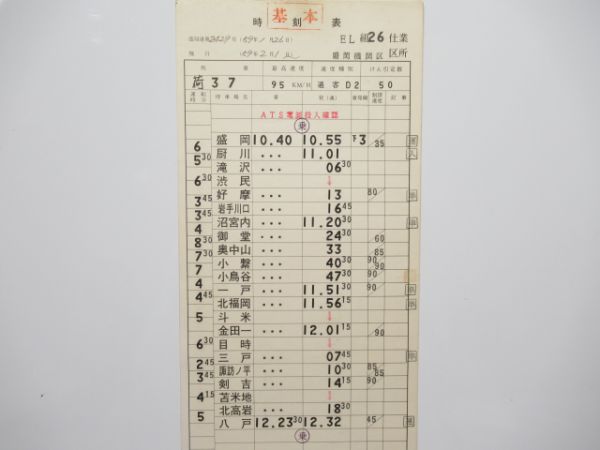 時刻表
基本
EL 組26 仕業
盛岡機関区 区所
列車 最高速度 速度種別 けん引定数
荷37 95 KM/H 通客D2 50
運転時分 停車場名 着 発(通) 着発線 制限速度 記事
ATS電源投入確認
乗
盛岡 10.40 10.55 下3 35
6
厨川 ... 11.01
5 30
滝沢 ... 06 30
渋民 ↓
6 30
好摩 ... 13 80
3 45
岩手川口 ... 16 45
3 45
沼宮内 ... 11.20 30
4
御堂 ... 24 30 60
8 30
奥中山 ... 33 85
7 30
小繋 ... 40 30 90 90
7
小鳥谷 ... 47 30 90
4
一戸 ... 11.51 30 90
4 45
北福岡 ... 11.56 15
斗米 ↓
5
金田一 ... 12.01 15 90
目時 ↓
6 30
三戸 ... 07 45
2 45
諏訪ノ平 ... 10 30 85 85
3 45
剣吉 ... 14 15 90
苫米地 ↓
4 15
北高岩 ... 18 30
5
八戸 12.23 30 12.32 45
乗